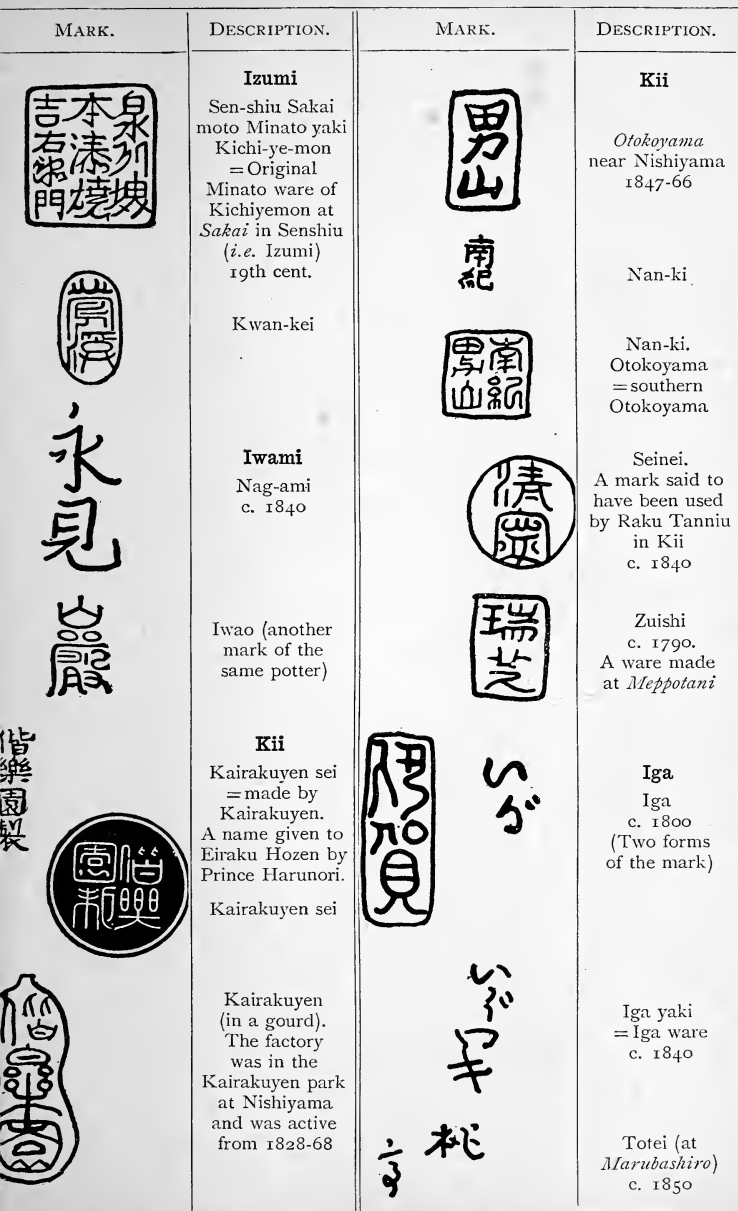 MARK.
DESCRIPTION.
泉州堺
本湊焼
吉右衛門
Izumi
Sen-shiu Sakai
moto Minato yaki
Kichi-ye-mon
= Original
Minato ware of
Kichiyemon at
Sakai in Senshiu
(i.e. Izumi)
19th cent.
Kwan-kei
永見
Iwami
Nag-ami
c. 1840
巖
Iwao (another
mark of the
same potter)
偕樂園製
Kii
Kairakuyen sei
= made by
Kairakuyen.
A name given to
Eiraku Hozen by
Prince Harunori.
偕樂
園製
Kairakuyen sei
偕樂園
Kairakuyen
(in a gourd).
The factory
was in the
Kairakuyen park
at Nishiyama
and was active
from 1828-68
MARK.
DESCRIPTION.
男山
Kii
Otokoyama
near Nishiyama
1847-66
南紀
Nan-ki
南紀
男山
Nan-ki.
Otokoyama
= southern
Otokoyama
清寧
Seinei.
A mark said to
have been used
by Raku Tanniu
in Kii
c. 1840
瑞芝
Zuishi
c. 1790.
A ware made
at Meppotani
伊賀
いが
Iga
Iga
c. 1800
(Two forms
of the mark)
いがヤキ
Iga yaki
= Iga ware
c. 1840
桃
亭
Totei (at
Marubashiro)
c. 1850